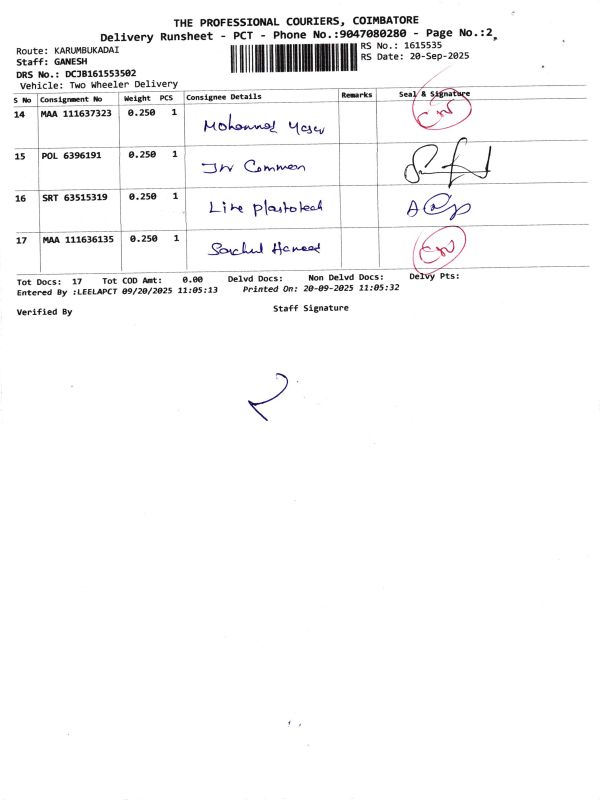 THE PROFESSIONAL COURIERS, COIMBATORE
Delivery Runsheet - PCT - Phone No.:9047080280 - Page No.:2
Route: KARUMBUKADAI
RS No.: 1615535
Staff: GANESH
RS Date: 20-Sep-2025
DRS No.: DCJB161553502
Vehicle: Two Wheeler Delivery
S No Consignment No Weight PCS Consignee Details Remarks Seal & Signature
14 MAA 111637323 0.250 1 Mohammad Yaser
15 POL 6396191 0.250 1 Common
16 SRT 63515319 0.250 1 Line Plastotech
17 MAA 111636135 0.250 1 Hameed
Tot Docs: 17 Tot COD Amt: 0.00 Delvd Docs: Non Delvd Docs: Delvy Pts:
Entered By :LEELAPCT 09/20/2025 11:05:13 Printed On: 20-09-2025 11:05:32
Verified By Staff Signature